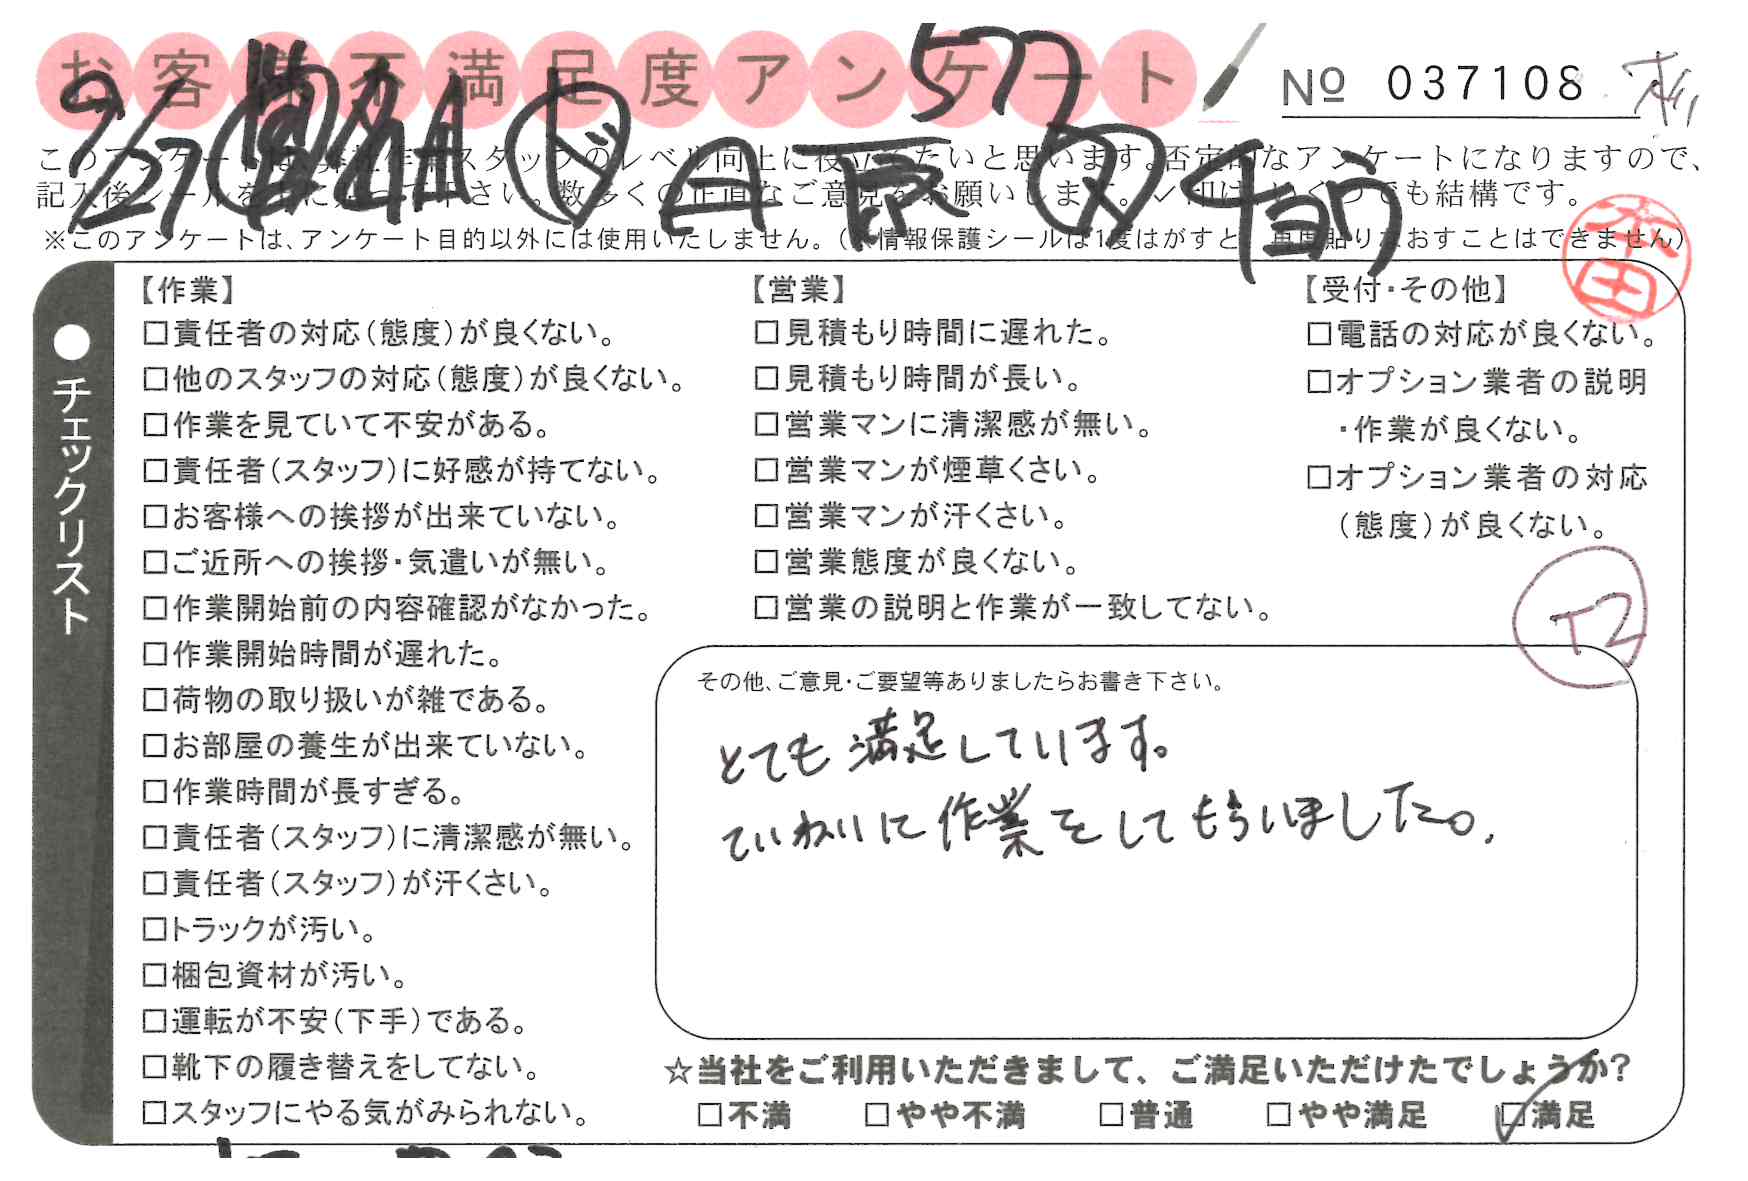 お客様不満足度アンケート
577
№ 037108
9/27
このアンケートは、弊社作業スタッフのレベル向上に役立てたいと思います。否定的なアンケートになりますので、
記入後シールを上に貼って下さい。数多くの正直なご意見をお願いします。✓印は、いくつでも結構です。
※このアンケートは、アンケート目的以外には使用いたしません。(※情報保護シールは1度はがすと、再度貼りなおすことはできません)
本田
●チェックリスト
【作業】
□責任者の対応(態度)が良くない。
□他のスタッフの対応(態度)が良くない。
□作業を見ていて不安がある。
□責任者(スタッフ)に好感が持てない。
□お客様への挨拶が出来ていない。
□ご近所への挨拶・気遣いが無い。
□作業開始前の内容確認がなかった。
□作業開始時間が遅れた。
□荷物の取り扱いが雑である。
□お部屋の養生が出来ていない。
□作業時間が長すぎる。
□責任者(スタッフ)に清潔感が無い。
□責任者(スタッフ)が汗くさい。
□トラックが汚い。
□梱包資材が汚い。
□運転が不安(下手)である。
□靴下の履き替えをしてない。
□スタッフにやる気がみられない。
【営業】
□見積もり時間に遅れた。
□見積もり時間が長い。
□営業マンに清潔感が無い。
□営業マンが煙草くさい。
□営業マンが汗くさい。
□営業態度が良くない。
□営業の説明と作業が一致してない。
【受付・その他】
□電話の対応が良くない。
□オプション業者の説明
・作業が良くない。
□オプション業者の対応
(態度)が良くない。
その他、ご意見・ご要望等ありましたらお書き下さい。
とても満足しています。
ていねいに作業をしてもらいました。
☆当社をご利用いただきまして、ご満足いただけたでしょうか?
□不満 □やや不満 □普通 □やや満足 ☑満足